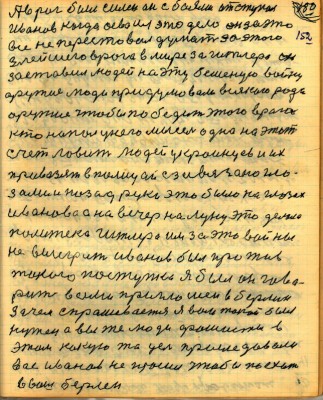 150
152
А враг был силен он с боями отступал
Иванов когда освоил это дело он за это
все не перестовал думать за этого
злейшего врага в мире за гитлера он
заставил людей на эту бешеную войну
другие люди придумовали всякого рода
оружие чтобы победить этого врага
кто напал у него мысел одна на этот
счет ловит людей украинцев и их
привозят в полицай с завязано гла-
зами и позад рука это было на глазах
иванова а на вечер на луну это делаю
политека гитлера им за это войны
не выиграть иванов был против
такого поступка я был он гово-
рит всеми пришло шей в берлин
Зачем спрашивается я вам такой был
нужен а вы же люди фашисты в
этом какую та цел преследовали
вас иванов не просил чтобы поехат
в ваш берлен